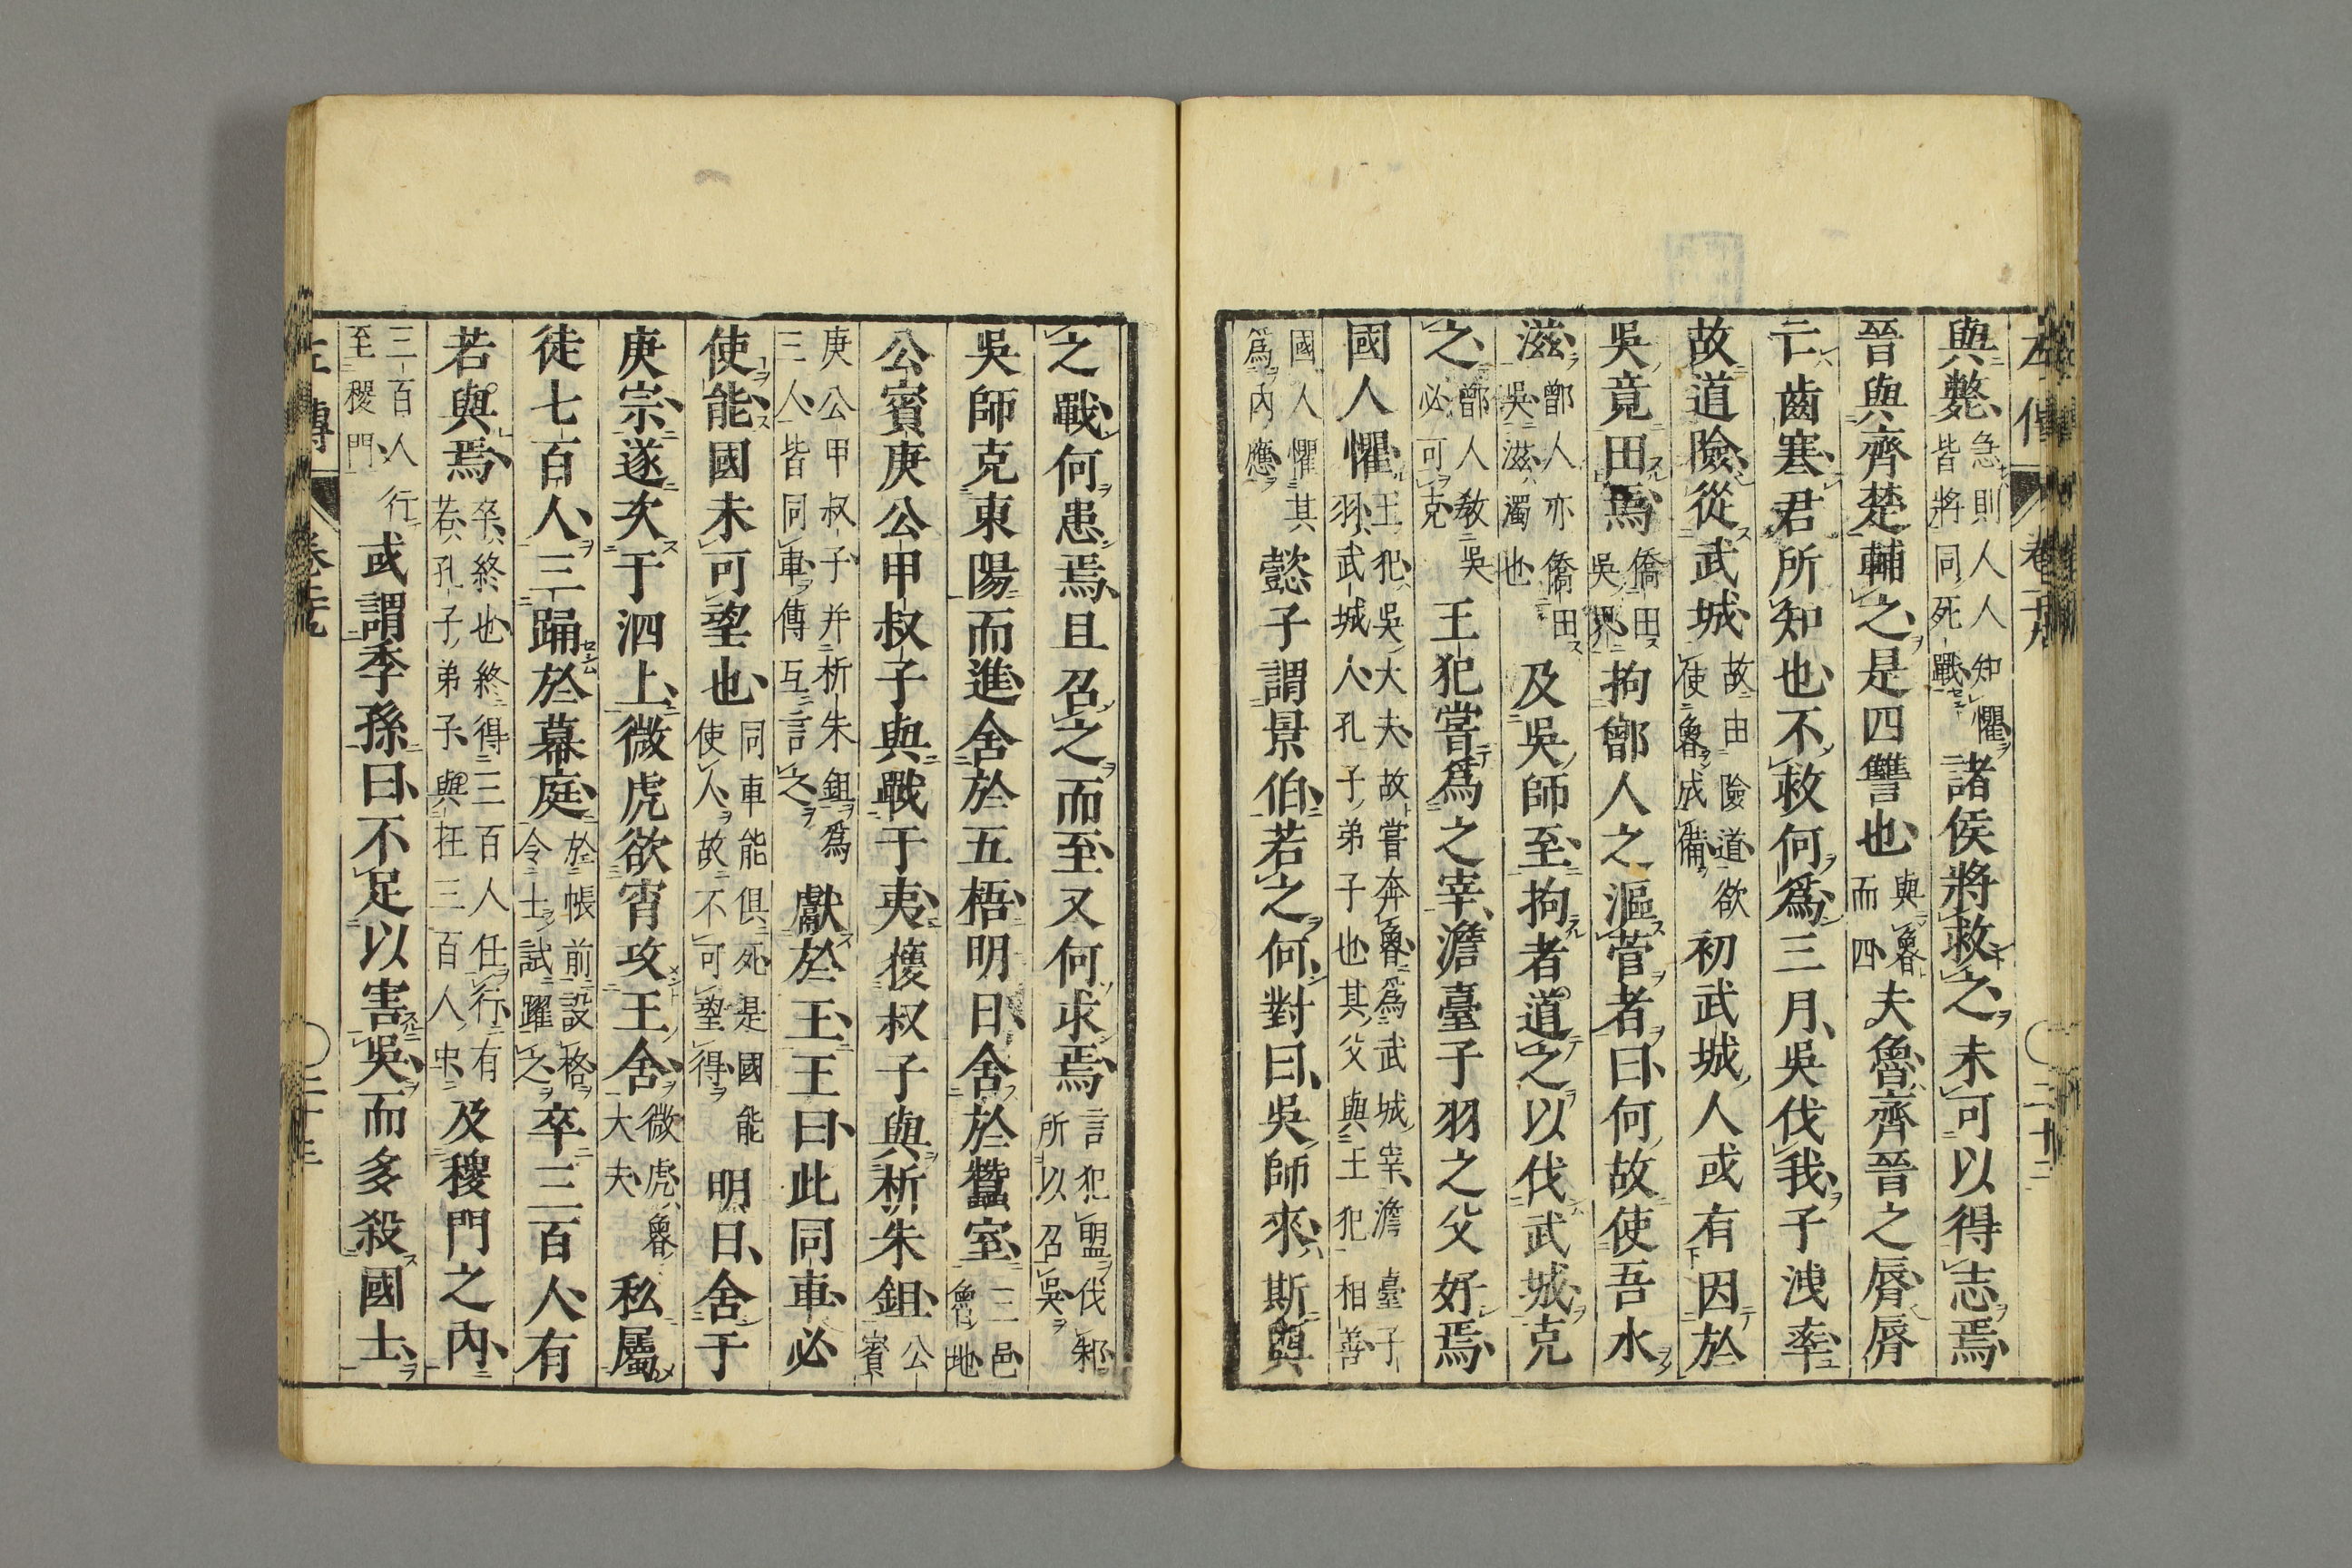 左傳 卷二十九 二十二
與斃、急則人人知懼皆將同死戰諸侯將救之、未可以得志焉、
晉與齊楚輔之、是四讐也、與魯而四夫魯、齊晉之脣、脣
亡齒寒、君所知也、不救何爲、三月、吳伐我、子洩率、
故道險、從武城、故由險道、欲使魯成備初武城人或有因於
吳竟田焉、僑田吳界拘鄫人之漚菅者、曰、何故使吾水
滋、鄫人亦僑田吳、滋、濁也及吳師至、拘者道之以伐武城、克
之、鄫人教吳必可克王犯嘗爲之宰、澹臺子羽之父好焉、
國人懼、王犯、吳大夫、故嘗奔魯、爲武城宰、澹臺子羽、武城人、孔子弟子也、其父與王犯相善
國人懼其爲內應懿子謂景伯、若之何、對曰、吳師來、斯與
之戰、何患焉、且召之而至、又何求焉、言犯盟伐邾、所以召吳、
吳師克東陽而進、舍於五梧、明日、舍於蠶室、三邑魯地
公賓庚公甲叔子與戰于夷、獲叔子與析朱鉏、公賓
庚公甲叔子并析朱鉏爲三人、皆同車、傳互言之、獻於王、王曰、此同車、必
使能、國未可望也、同車能俱死、是國能使人、故不可望得明日、舍于
庚宗、遂次于泗上、微虎欲宵攻王舍、微虎、魯大夫、私屬
徒七百人、三踊於幕庭、於帳前設格、令士試躍之、卒三百人、有
若與焉、卒、終也、終得三百人任行、有若、孔子弟子、與在三百人中、及稷門之內、
三百人行至稷門、或謂季孫曰、不足以害吳、而多殺國士、
左傳 卷二十九 二十三